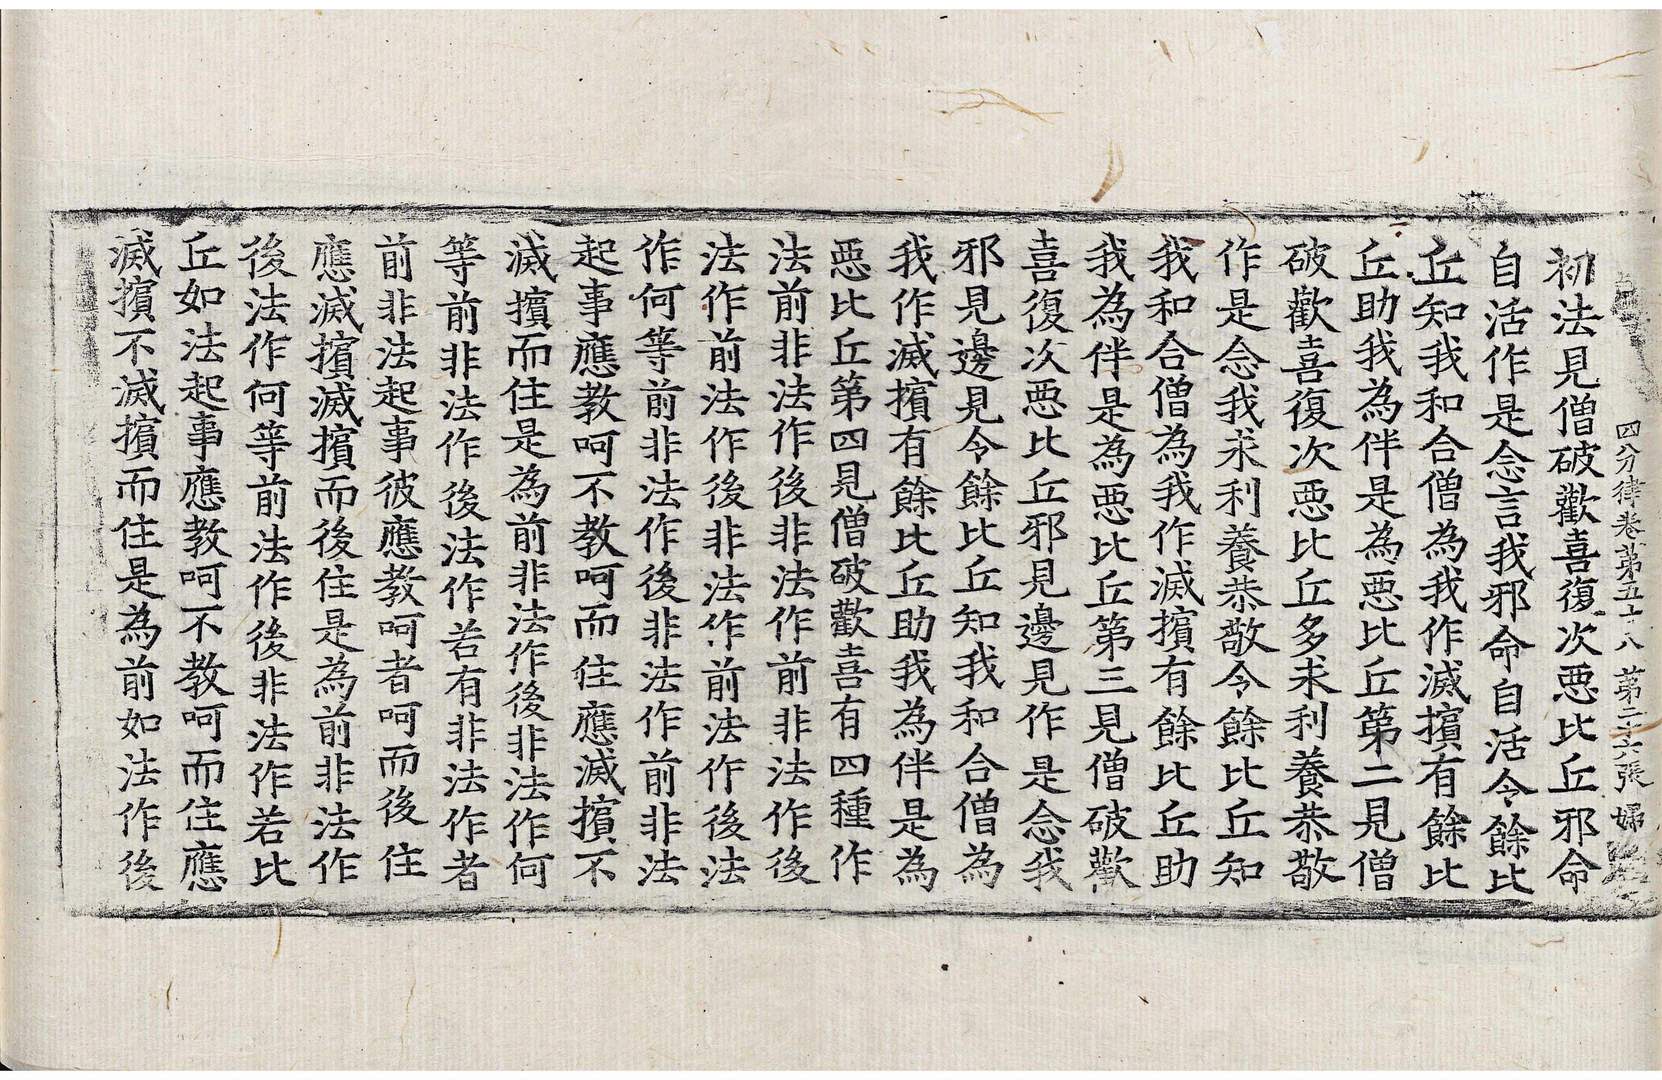 四分律卷第五十八 第二十六張 婦
初法見僧破歡喜復次惡比丘邪命
自活作是念言我邪命自活令餘比
丘知我和合僧為我作滅擯有餘比
丘助我為伴是為惡比丘第二見僧
破歡喜復次惡比丘多求利養恭敬
作是念我求利養恭敬令餘比丘知
我和合僧為我作滅擯有餘比丘助
我為伴是為惡比丘第三見僧破歡
喜復次惡比丘邪見邊見作是念我
邪見邊見令餘比丘知我和合僧為
我作滅擯有餘比丘助我為伴是為
惡比丘第四見僧破歡喜有四種作
法前非法作後非法作前非法作後
法作前非法作後非法作前法作後法
作何等前非法作後非法作前非法
起事應教呵不教呵而住應滅擯不
滅擯而住是為前非法作後非法作何
等前非法作後法作若有非法作者
前非法起事彼應教呵者呵而後住
應滅擯滅擯而後住是為前非法作
後法作何等前法作後非法作若比
丘如法起事應教呵不教呵而住應
滅擯不滅擯而住是為前如法作後